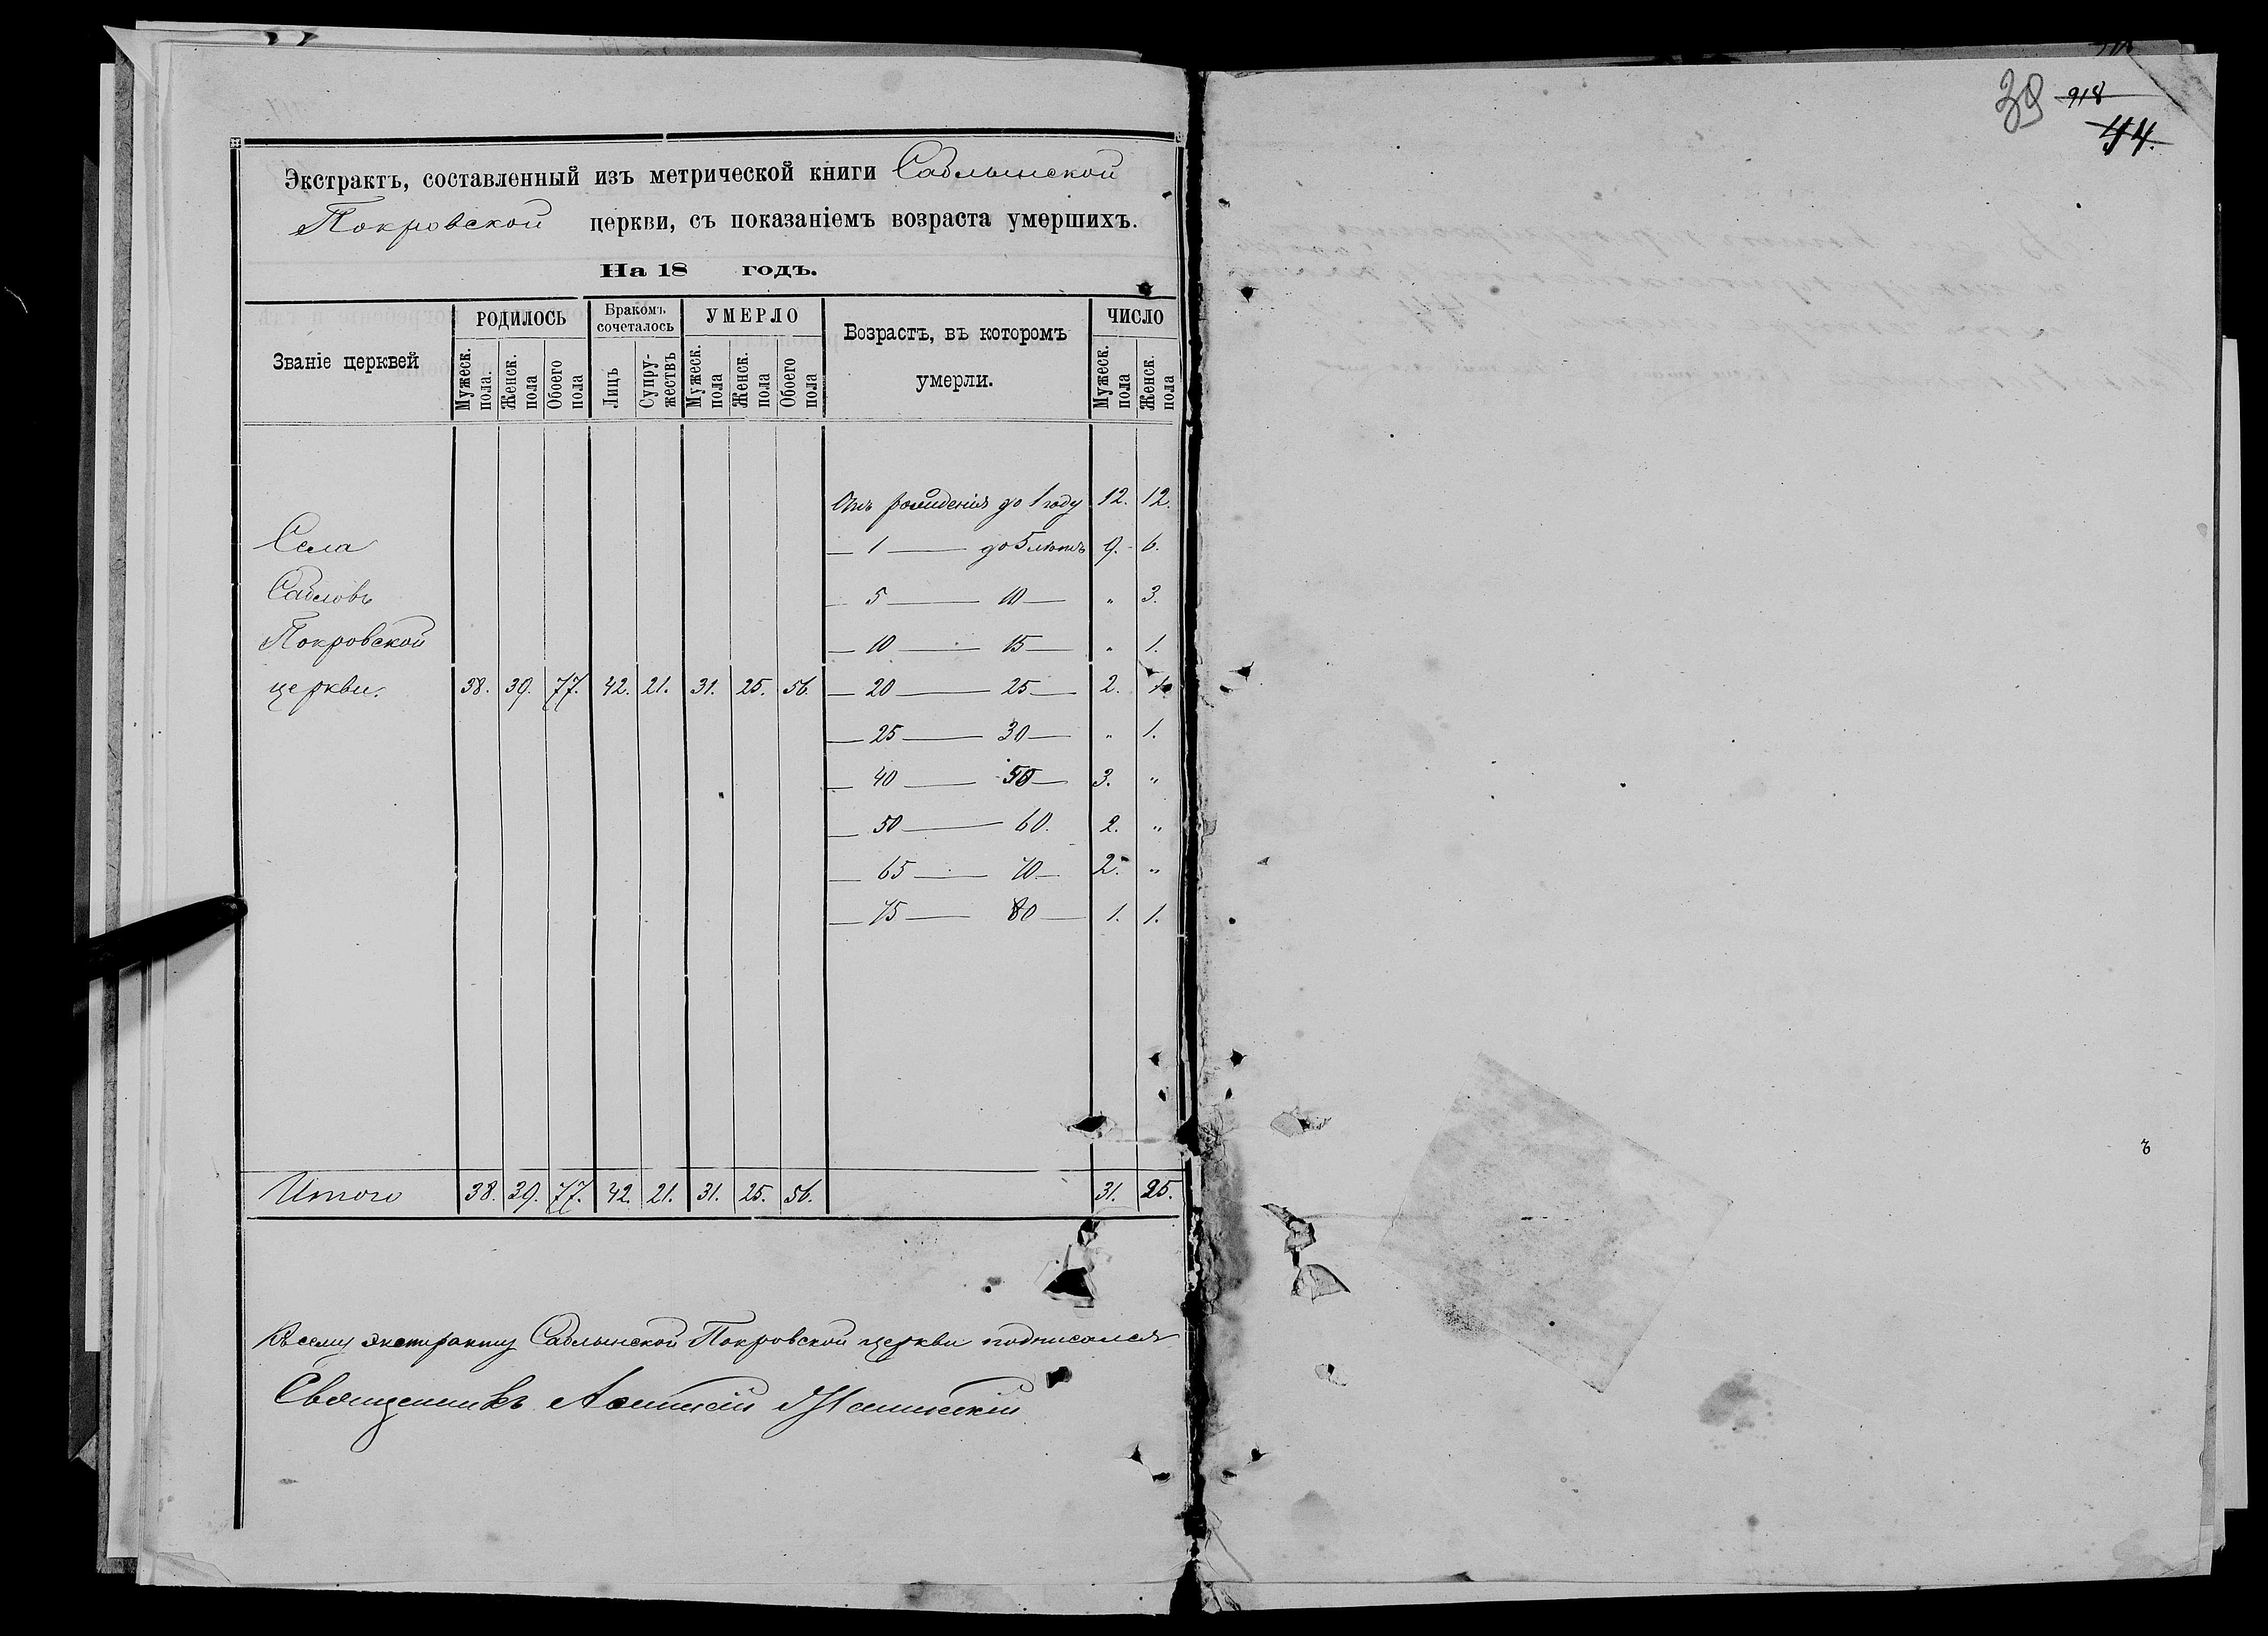 38 918
44.
Экстрактъ, составленный изъ метрической книги Саблынской
Покровской церкви, съ показаніемъ возраста умершихъ.
На 18 годъ.
Званіе церквей
РОДИЛОСЬ
Мужеск. пола.
Женск. пола
Обоего пола
Бракомъ сочеталось
Лицъ
Супру-жествъ
УМЕРЛО
Мужеск. пола
Женск. пола
Обоего пола
Возрастъ, въ которомъ
умерли.
ЧИСЛО
Мужеск. пола
Женск. пола
Отъ рожденія до 1 году 12. 12.
Села — 1 — до 5 лѣтъ 9. 6.
Сабловъ — 5 — 10 — " 3.
Покровской — 10 — 15 — " 1.
церкви. 38. 39. 77. 42. 21. 31. 25. 56. — 20 — 25 — 2. 1
— 25 — 30 — " 1.
— 40 — 50 — 3. "
— 50 — 60. 2. "
— 65 — 70 — 2. "
— 75 — 80 — 1. 1.
Итого 38. 39. 77. 42. 21. 31. 25. 56. 31. 25.
Къ сему экстракту Саблынской Покровской церкви подписался
Священникъ